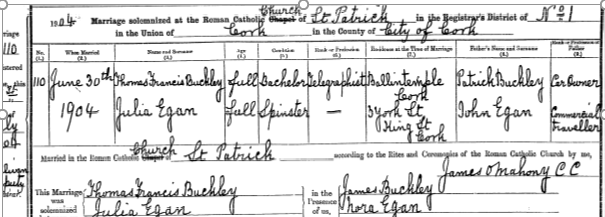 1904 Marriage solemnized at the Roman Catholic Church Chapel of St Patrick in the Registrar's District of No 1
in the Union of Cork in the County of City of Cork
No. When Married Name and Surname Age Condition Rank or Profession Residence at the Time of Marriage Father's Name and Surname Rank or Profession of Father
110 June 30th Thomas Francis Buckley full Bachelor Telegraphist Ballintemple Cork Patrick Buckley Car Owner
1904 Julia Egan full Spinster — 3 York St King St Cork John Egan Commercial Traveller
Married in the Roman Catholic Church Chapel of St Patrick according to the Rites and Ceremonies of the Roman Catholic Church by me,
James O'Mahony CC
This Marriage was solemnized Thomas Francis Buckley in the Presence of us, James Buckley
Julia Egan Nora Egan